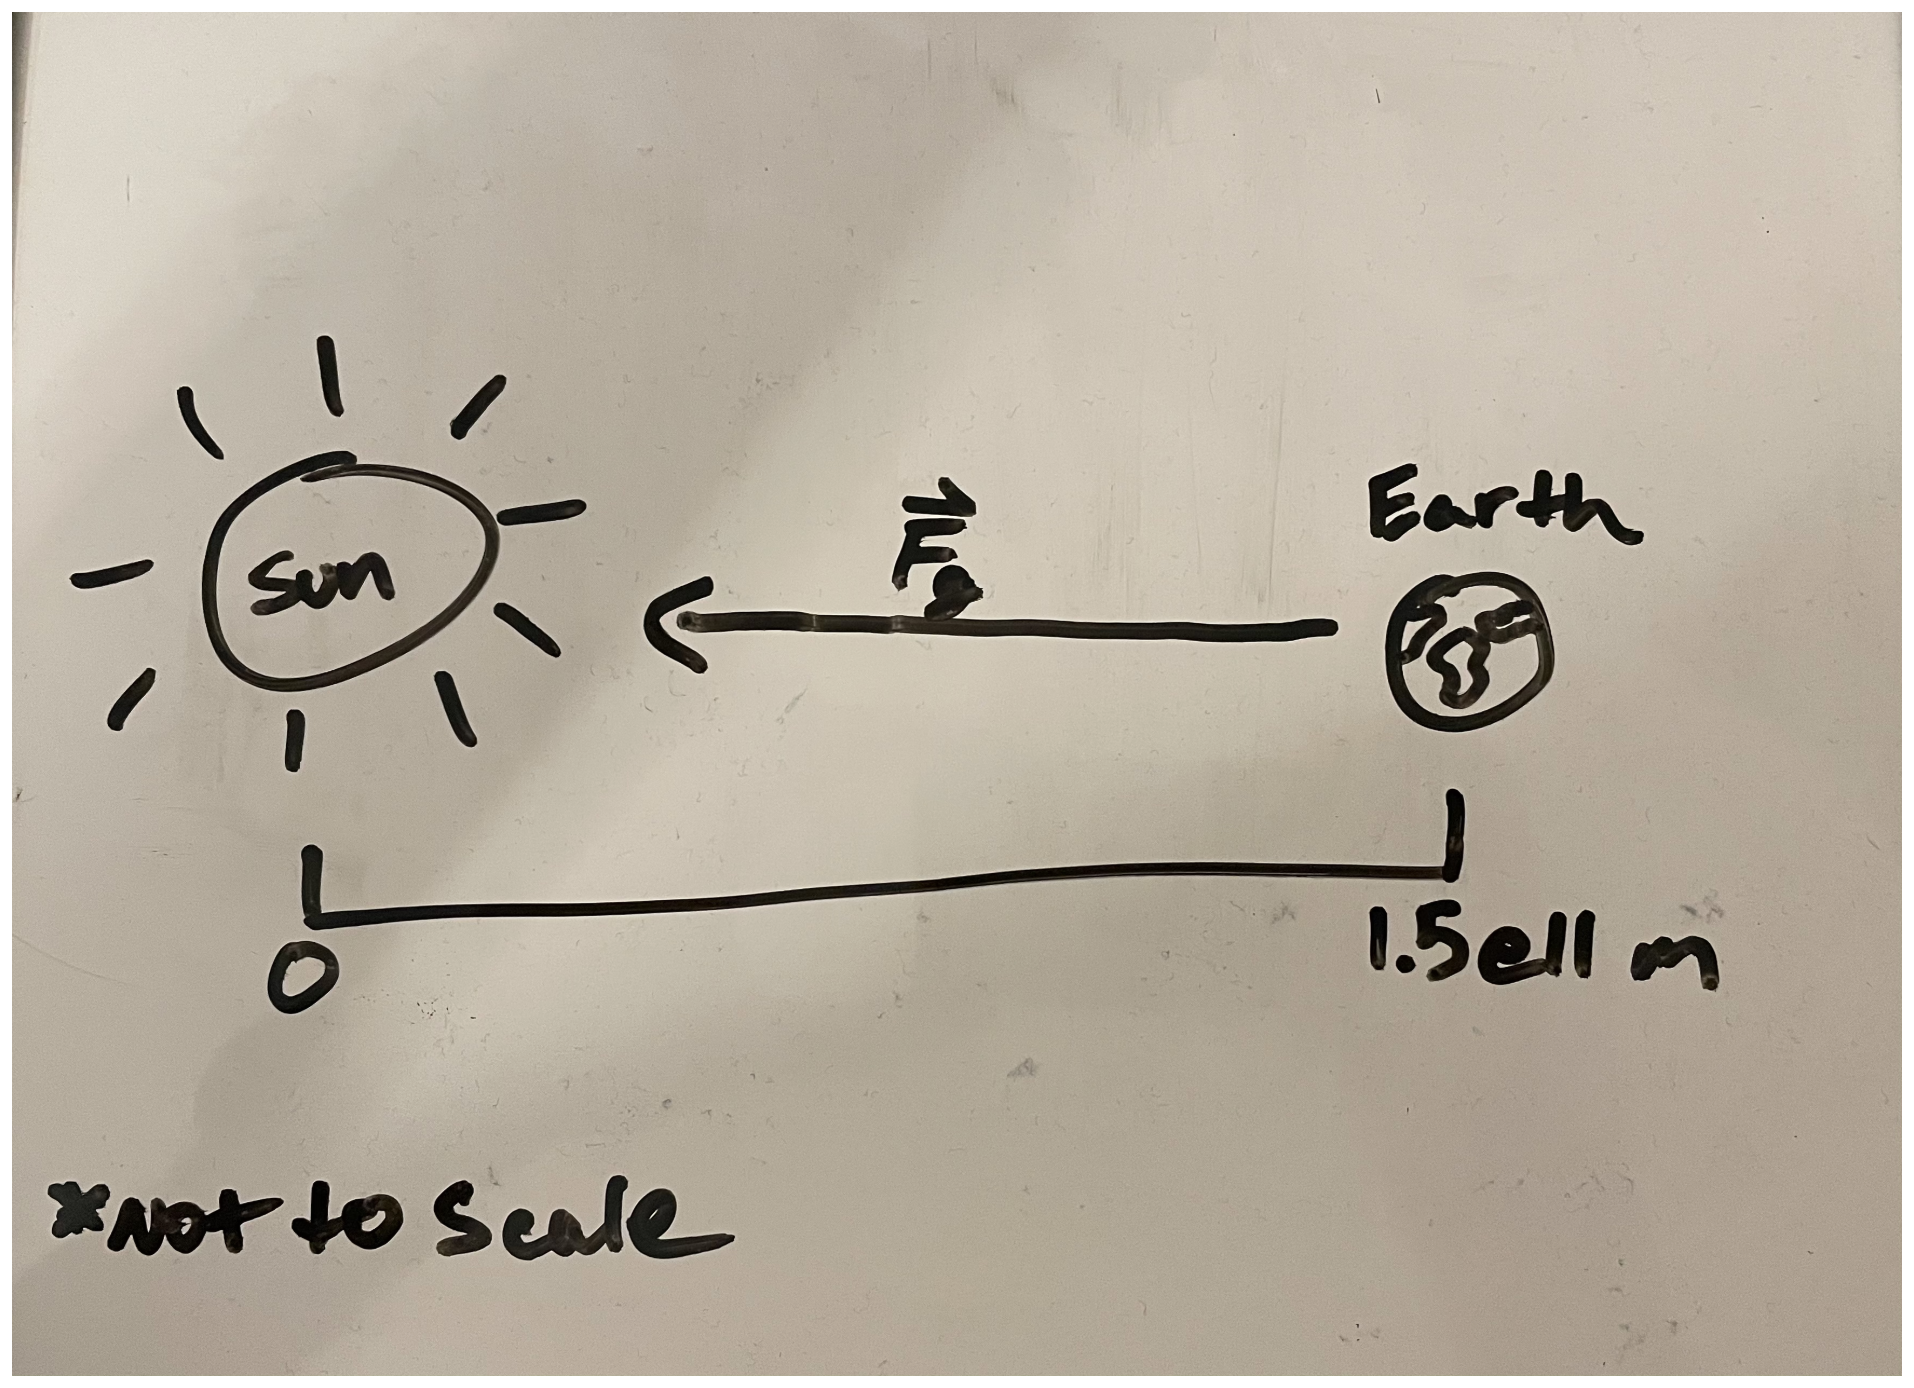 Sun
F
Earth
0
1.5e11 m
*Not to Scale